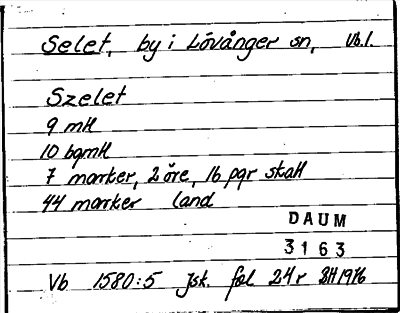 Selet, by i Lövånger sn, Vb.l.
Szelet
9 mtl
10 bgmtl
7 marker, 2 öre, 16 pgr skatt
44 marker land
DAUM
3163
Vb 1580:5 Jsk. fol 24r BH1976